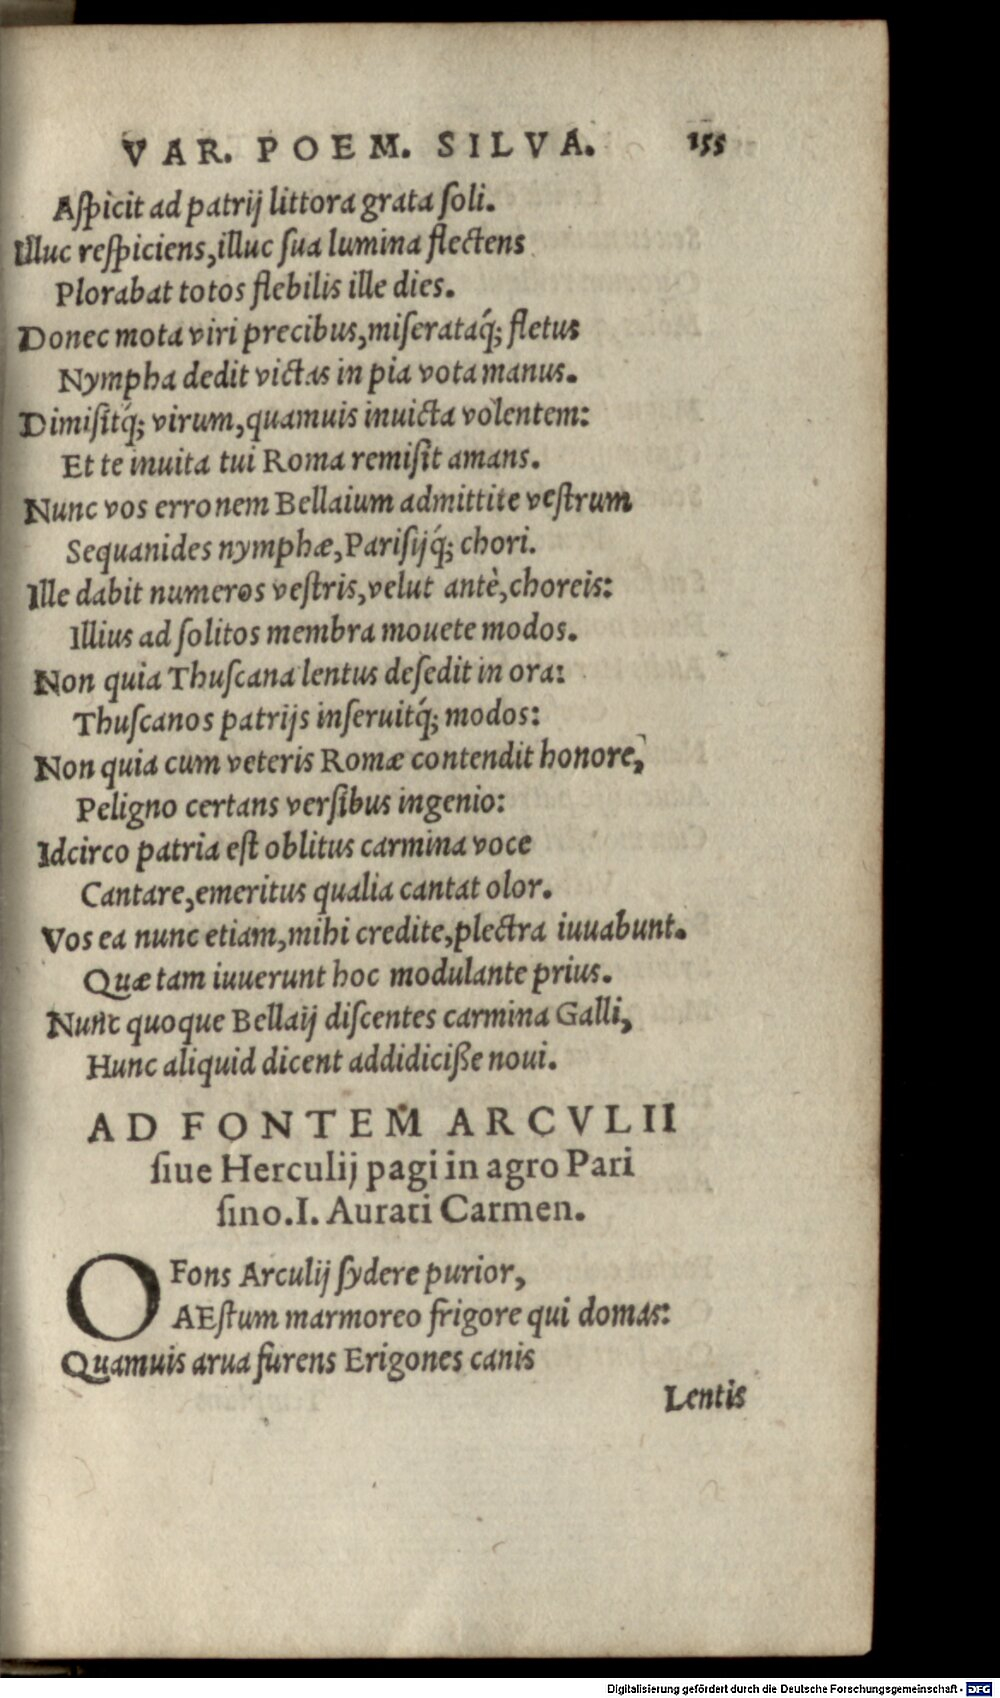 VAR. POEM. SILVA. 155
Aſpicit ad patrij littora grata ſoli.
Illuc reſpiciens, illuc ſua lumina flectens
Plorabat totos flebilis ille dies.
Donec mota viri precibus, miſerataq́; fletus
Nympha dedit victas in pia vota manus.
Dimiſitq́; virum, quamuis inuicta volentem:
Et te inuita tui Roma remiſit amans.
Nunc vos erronem Bellaium admittite veſtrum
Sequanides nymphæ, Pariſijq́; chori.
Ille dabit numeros veſtris, velut antè, choreis:
Illius ad ſolitos membra mouete modos.
Non quia Thuſcana lentus deſedit in ora:
Thuſcanos patrijs inſeruitq́; modos:
Non quia cum veteris Romæ contendit honore,
Peligno certans verſibus ingenio:
Idcirco patria eſt oblitus carmina voce
Cantare, emeritus qualia cantat olor.
Vos ea nunc etiam, mihi credite, plectra iuuabunt.
Quæ tam iuuerunt hoc modulante prius.
Nunc quoque Bellaij diſcentes carmina Galli,
Hunc aliquid dicent addidiciße noui.
AD FONTEM ARCVLII
ſiue Herculij pagi in agro Pari
ſino. I. Aurati Carmen.
O Fons Arculij ſydere purior,
AEſtum marmoreo frigore qui domas:
Quamuis arua furens Erigones canis
Lentis
Digitalisierung gefördert durch die Deutsche Forschungsgemeinschaft - DFG